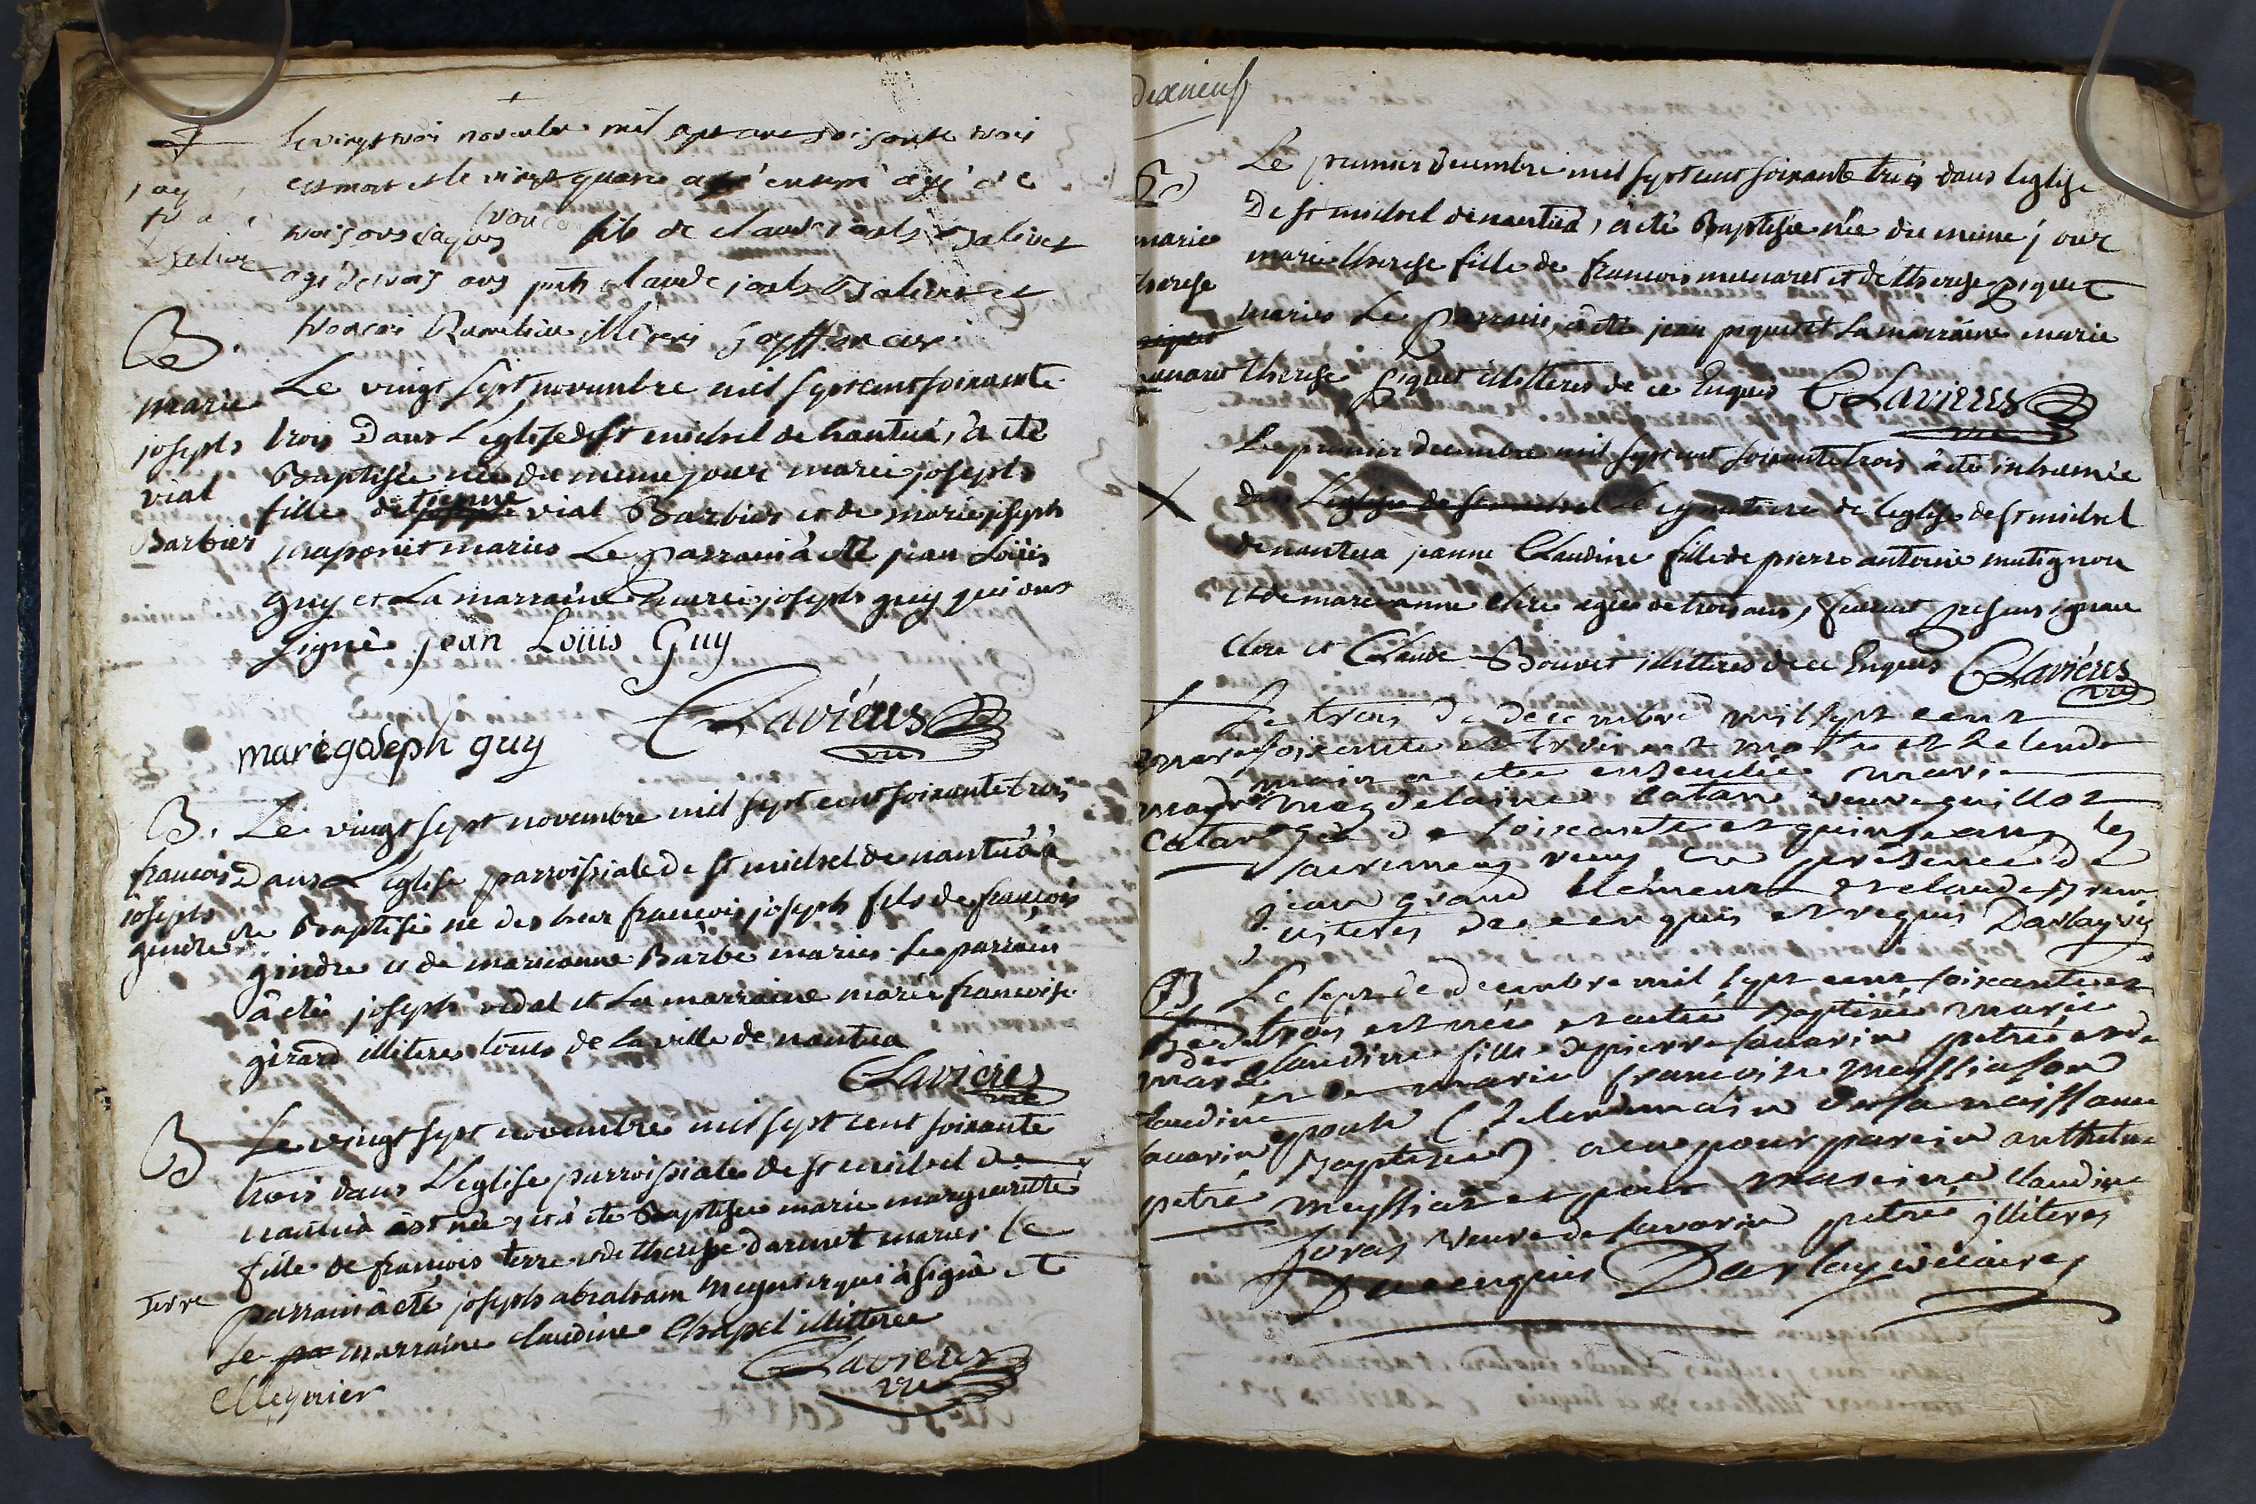 le vingt trois novembre mil sept cent soisante trois
est mort et le vingt quatre a été enterré agé de
trois ans jaques fils de claude joseph Balivet
agé de trois ans pnts claude joseph Balivet et
francois illiteres
B.
marie
joseph
vial
Barbier
Le vingt sept novembre mil sept cent soixante
trois Dans L'eglise de st michel de nantua, à eté
Baptisée née du meme jour marie joseph
fille d'etienne vial Barbier et de marie joseph
maries Le parrain à eté jean Loüis
guy et La marraine marie joseph guy qui ont
signé jean Loüis Guy
marégoseph guy
Clavières
vre
B.
francois
joseph
gindre
Le vingt sept novembre mil sept cent soixante trois
Dans L'eglise parroissiale de st michel de nantua à
ete Baptisé ne des hier francois joseph fils de francois
gindre et de marieanne Barbe maries Le parrain
à eté joseph vidal et La marraine marie francoise
girard illitere touts de la ville de nantua
Clavières
vre
B
Terre
Le vingt sept novembre mil sept cent soixante
trois dans L'eglise parroissiale de st michel de
nantua est née, et à eté Baptisée marie marguerite
fille de francois terre et de therese darmet maries le
parrain à eté joseph abraham meynier qui à signé et
Le pa marraine claudine Chapel illitterée
Clavières
vre
Meynier
dixneuf
B
marie
therese
piquet
munaret
Le premier decembre mil sept cent soixante trois dans leglise
De st michel de nantua, à eté Baptisée née du meme jour
marie therese fille de francois munaret et de therese piquet
maries Le Parrain à eté jean piquet et La marraine marie
therese piquet illitteres de ce Enquis Clavières
vre
Le premier decembre mil sept cent soixante trois à eté inhumée
X
dans L'eglise de st michel Le cymetiere de leglise de st michel
de nantua jeanne Claudine fille de pierre antoine matignon
et de marieanne clere agée de trois ans, furent presens
clere et Claude Bouvet illitteres de ce Enquis Clavières
vre
marie
magd
catan
Le trois de decembre mil sept cent
soixente et trois est morte et le lende
main a été enseudie marie
magdelaine catan veuve guillot
agée de soixante et quinse ans les
sacremens reçus en presence de
jean grand clément et claude
illiteres de ce enquis et requis Darlay vic
B
marie
claudine
savarin
petré
Le sept de decembre mil sept cent soixante et
trois est née et a eté baptisée marie
claudine fille de pierre savarin petré et de
et de marie francoise meyssiasson
epouse (le lendemain de sa naissance
baptisée) a eu pour parein anthelme
meyssiat et pour mareine claudine
joras veuve de savarin petré illiteres
De ce enquis Darlay vicaire